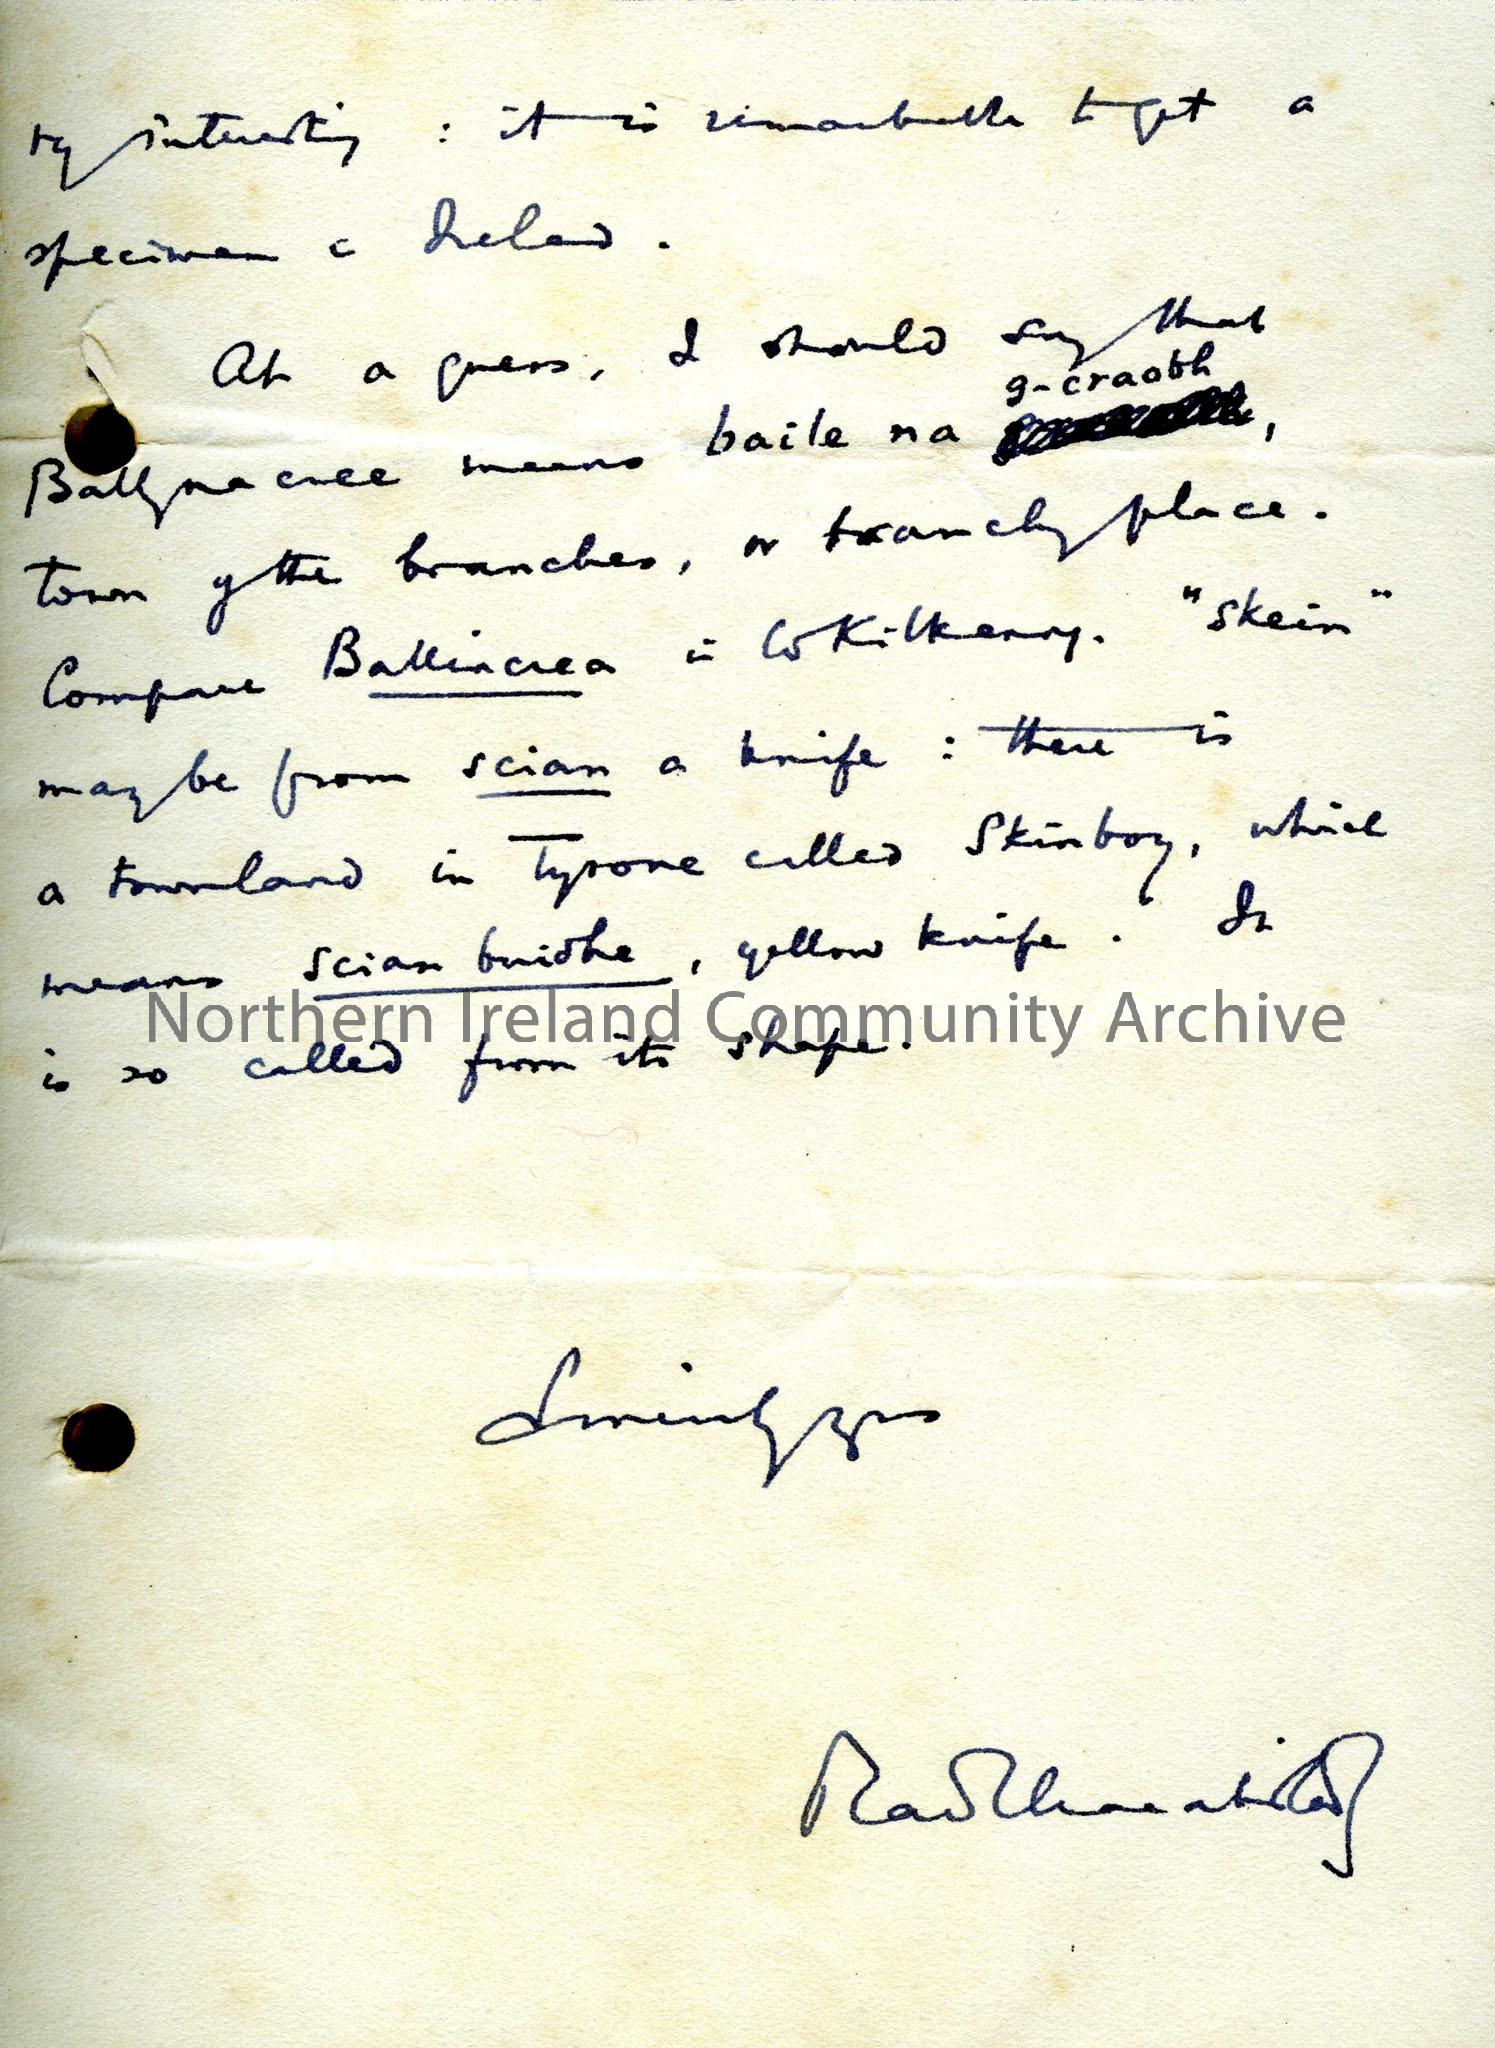 interesting : it is remarkable to get a
specimen in Ireland.
At a guess, I should say that
g-craobh
Ballynacree means baile na ,
town of the branches, or branchy place.
Compare Ballincrea in Co Kilkenny. "Skein"
may be from scian a knife : there is
a townland in Tyrone called Skinboy, which
means scian buidhe, yellow knife. It
Northern Ireland Community Archive
is so called from its shape.
Sincerely yours